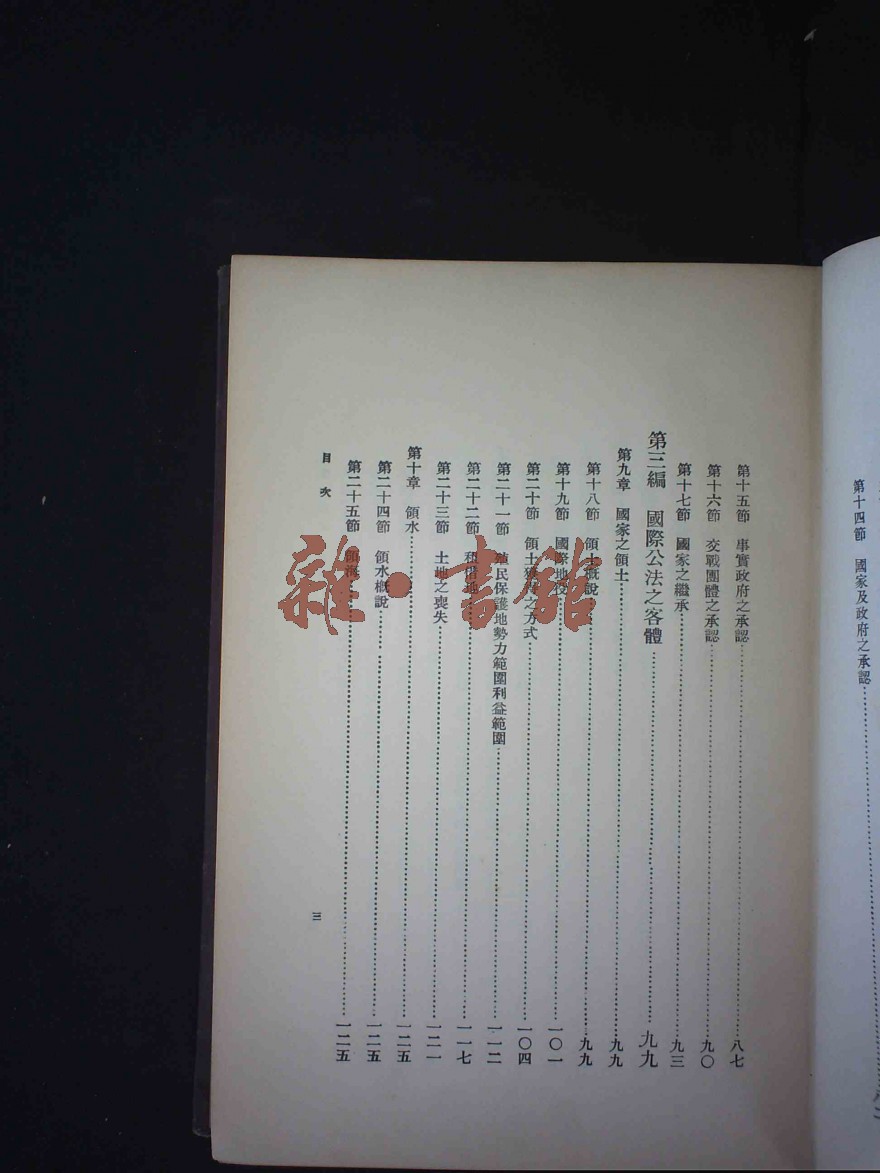 第十四節　國家及政府之承認
第十五節　事實政府之承認……八七
第十六節　交戰團體之承認……九〇
第十七節　國家之繼承……九三
第三編　國際公法之客體……九九
第九章　國家之領土……九九
第十八節　領土概說……九九
第十九節　國際地役……一〇一
第二十節　領土獲得之方式……一〇四
第二十一節　殖民保護地勢力範圍利益範圍……一一二
第二十二節　租借地……一一七
第二十三節　土地之喪失……一二一
第十章　領水……一二五
第二十四節　領水概說……一二五
第二十五節　領海……一二五
目次
三
雜·書館